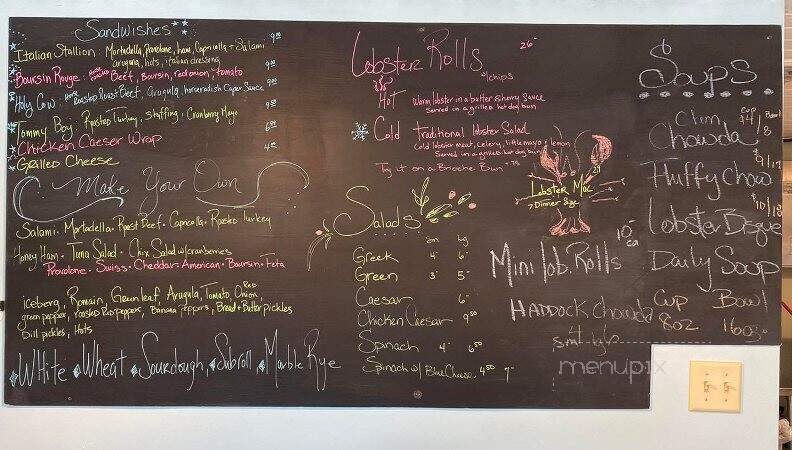 Sandwishes
Italian Stallion: Mortadella, Provolone, ham, Capricolla + Salami 9.00
arugula, hots, italian dressing
Boursin Rouge: Beef, Boursin, red onion, tomato 9.00
Holy Cow: Roast Beef, Arugula, horseradish Caper Sauce
Tommy Boy: Roasted Turkey, stuffing, Cranberry Mayo
Chicken Caeser Wrap
Grilled Cheese
Make Your Own
Salami. Mortadella. Roast Beef. Capricolla. Roasted Turkey
Honey Ham. Tuna Salad. Chix Salad w/cranberries
Provolone. Swiss. Cheddar. American. Boursin. Feta
iceberg, Romain, Green leaf, Arugula, Tomato, Red Onion,
green pepper, roasted Red peppers, Banana peppers, Bread + Butter pickles
Dill pickles, Hots
White Wheat Sourdough, Subroll, Marble Rye
Lobster Rolls 26-
w/chips
Hot Warm lobster in a butter sherry sauce
Served in a grilled hot dog bun
Cold Traditional lobster Salad
Cold lobster meat, celery, little mayo + lemon
Served in a grilled hot dog bun
Try it on a Brioche Bun
Lobster Mac 21
Dinner Size
Salads
sm Lg
Greek 4- 6-
Green 3- 5-
Caesar 6-
Chicken Caesar 9.50
Spinach 4- 6.50
Spinach w/ Blue Cheese 4.50 7-
Mini lob. Rolls 10- ea
Haddock chowda
sm lg
Soups
Cup Bowl
Clam Chowda $4/8
Fluffy Chow
Lobster Bisque
Daily Soup
Cup Bowl
8oz 16oz
menupix